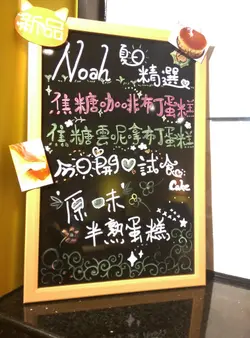 新品
Noah 夏日
精選
焦糖咖啡布丁蛋糕
焦糖雲呢拿布丁蛋糕
今日開心試食
Cake
原味
半熟蛋糕